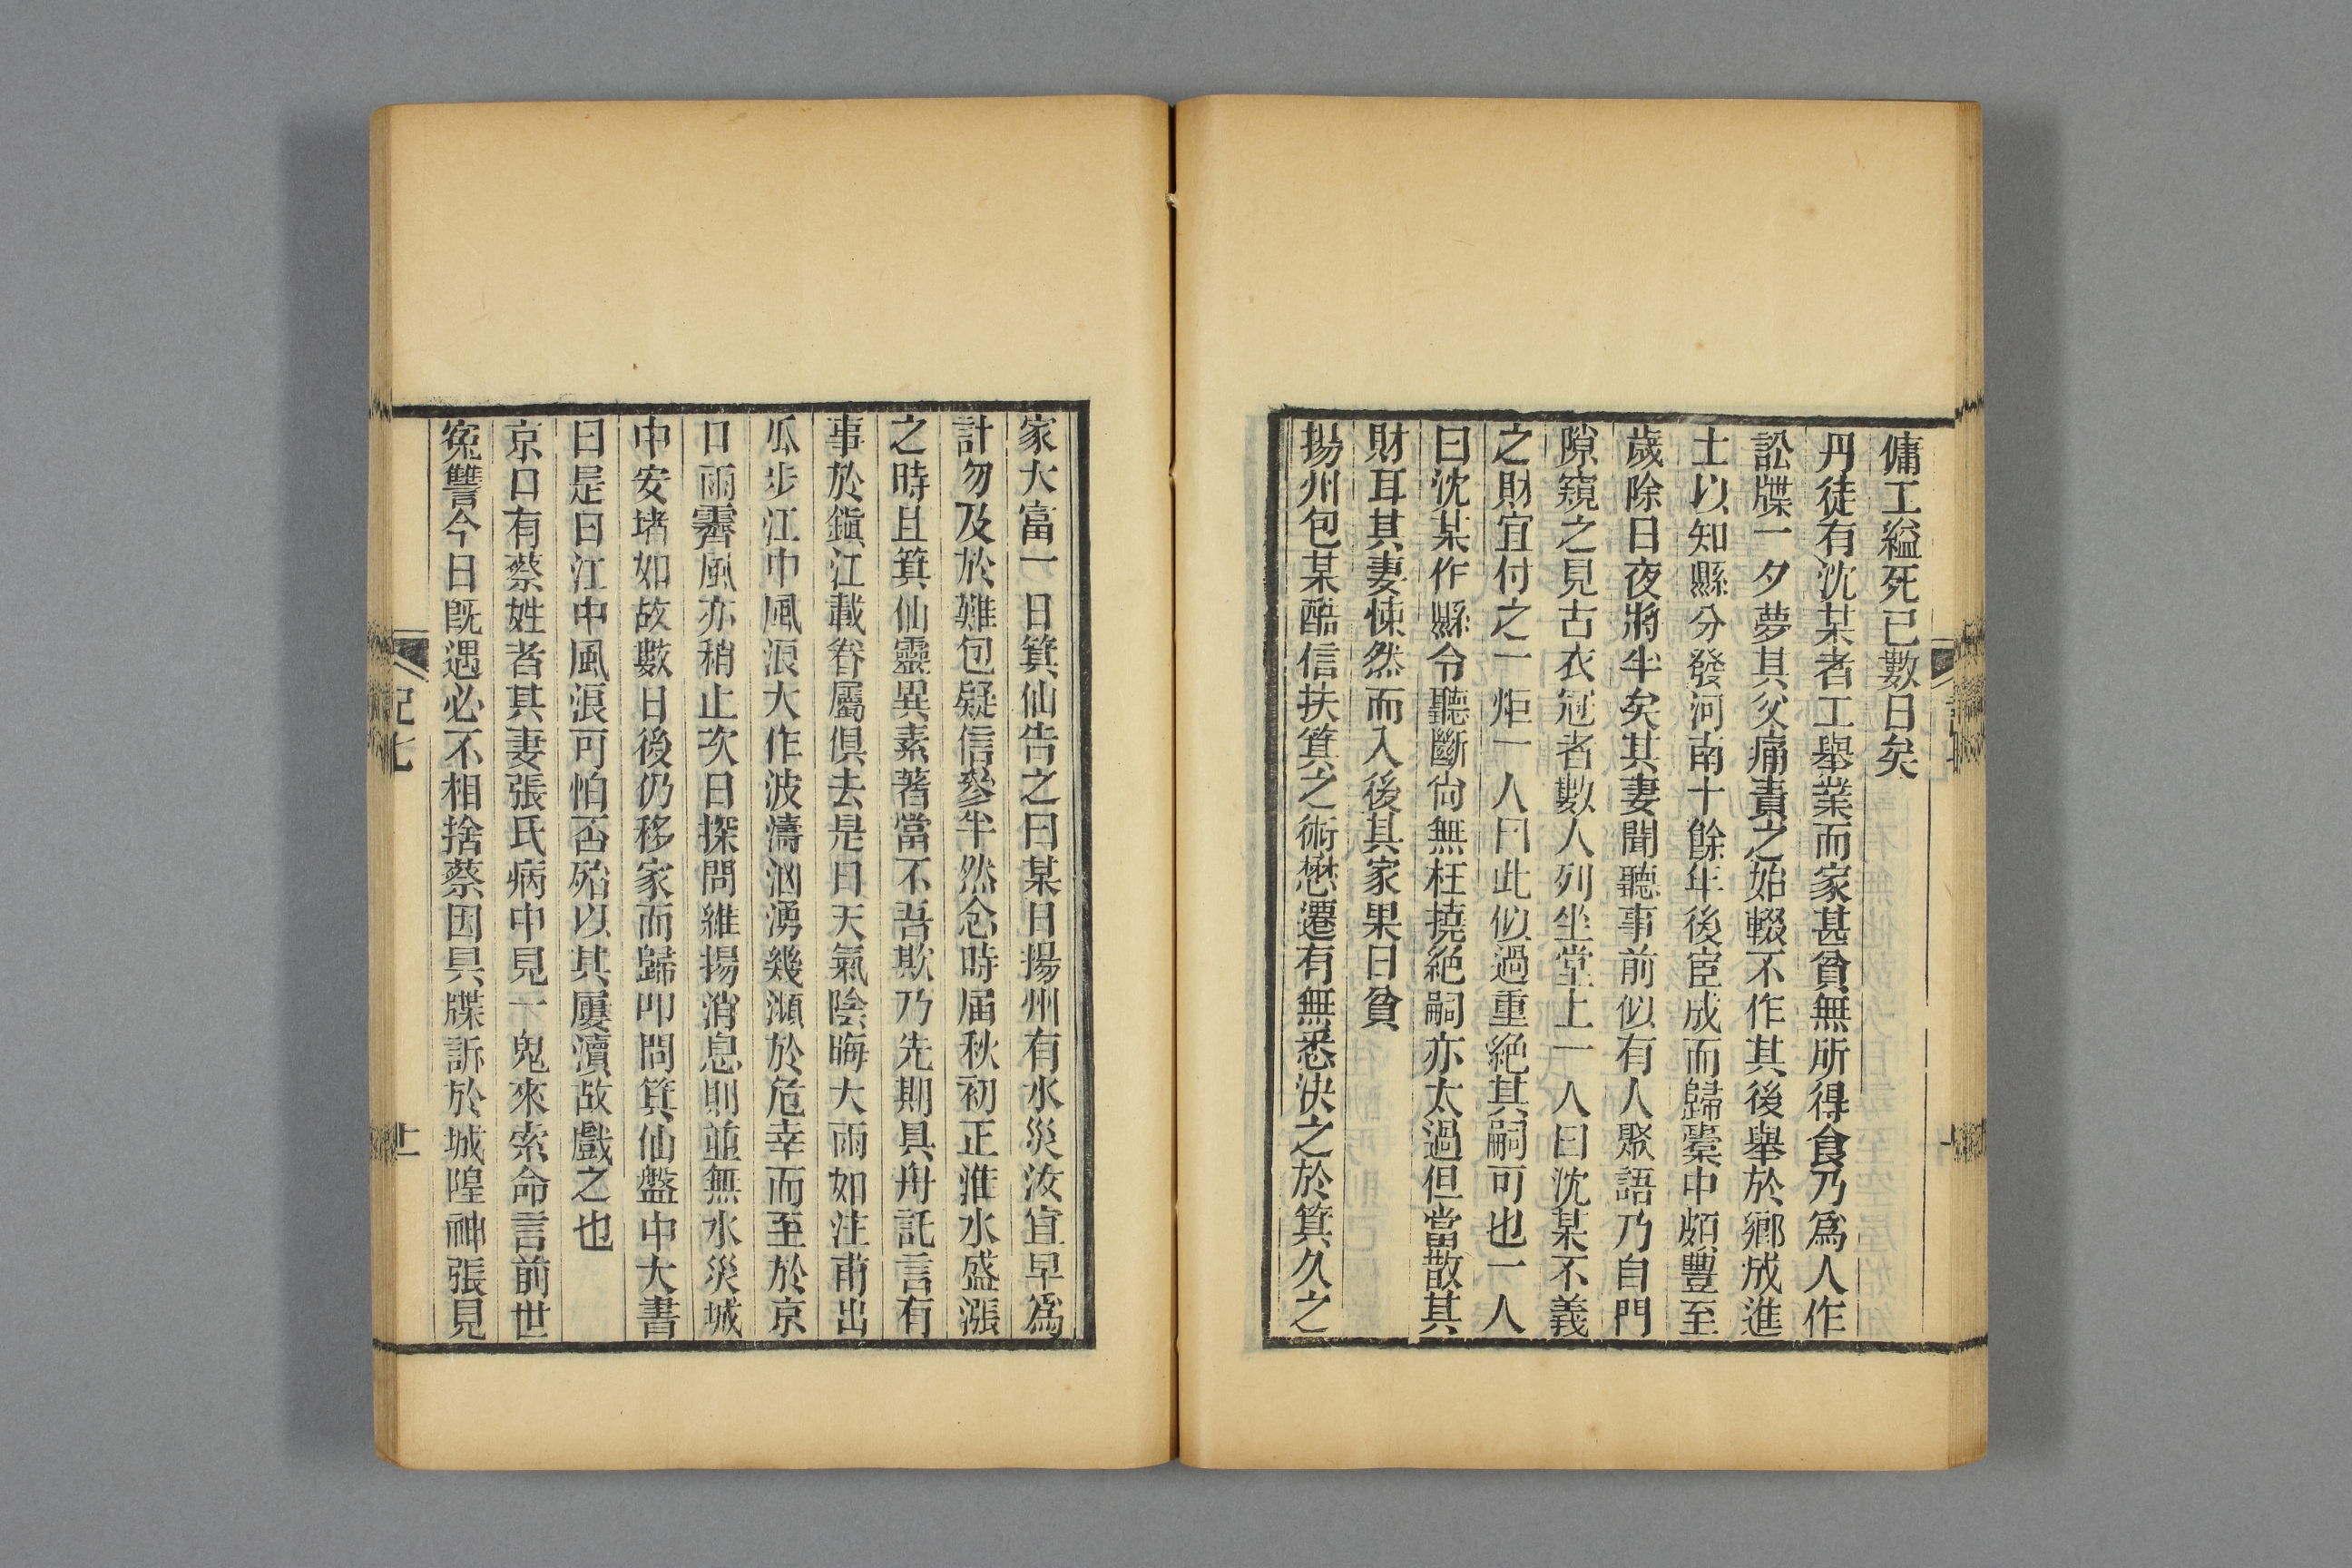 傭工縊死已數日矣
丹徒有沈某者工舉業而家甚貧無所得食乃爲人作
訟牒一夕夢其父痛責之始輟不作其後舉於鄉成進
士以知縣分發河南十餘年後宦成而歸橐中頗豐至
歲除日夜將半矣其妻聞聽事前似有人聚語乃自門
隙窺之見古衣冠者數人列坐堂上一人曰沈某不義
之財宜付之一炬一人曰此似過重絕其嗣可也一人
曰沈某作縣令聽斷尙無枉撓絕嗣亦太過但當散其
財耳其妻悚然而入後其家果日貧
揚州包某酷信扶箕之術懋遷有無悉決之於箕久之
家大富一日箕仙告之曰某日揚州有水災汝宜早爲
計勿及於難包疑信參半然念時届秋初正淮水盛漲
之時且箕仙靈異素著當不吾欺乃先期具舟託言有
事於鎭江載眷屬俱去是日天氣陰晦大雨如注甫出
瓜步江中風浪大作波濤洶湧幾瀕於危幸而至於京
口雨霽風亦稍止次日探問維揚消息則並無水災城
中安堵如故數日後仍移家而歸叩問箕仙盤中大書
曰是日江中風浪可怕否殆以其屢瀆故戲之也
京口有蔡姓者其妻張氏病中見一鬼來索命言前世
寃讐今日旣遇必不相捨蔡因具牒訴於城隍神張見
記七